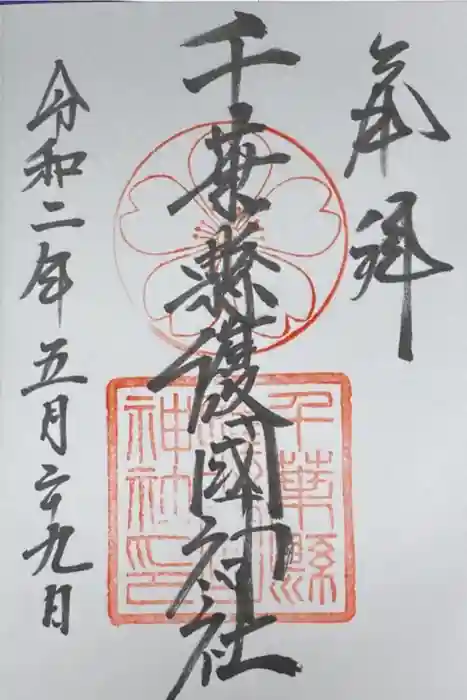 奉拝
千葉縣護國神社
千葉縣
護國
神社之印
令和二年五月二十九日